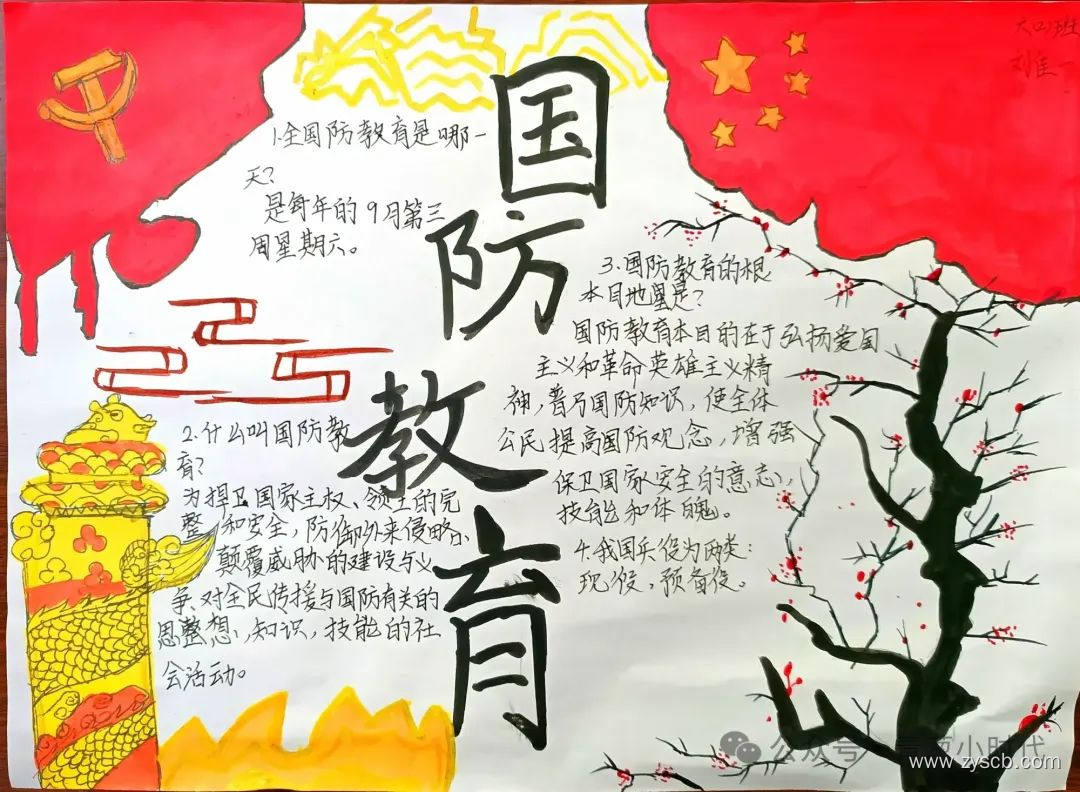 国
防
教
育
大(2)班
刘佳一
1.全国防教育是哪一
天?
是每年的9月第三
周星期六。
2.什么叫国防教
育?
为捍卫国家主权、领土的完
整和安全,防御外来侵略、
颠覆威胁的建设与义
争、对全民传授与国防有关的
思整想、,知识,技能的社
会活动。
3.国防教育的根
本目地是?
国防教育本目的在于弘扬爱国
主义和革命英雄主义精
神,普乃国防知识,使全体
公民提高国防观念,增强
保卫国家安全的意志、
技能和体魄。
4.我国兵役为两类:
现役,预备役。
公众号
小时代
www.zyscb.com